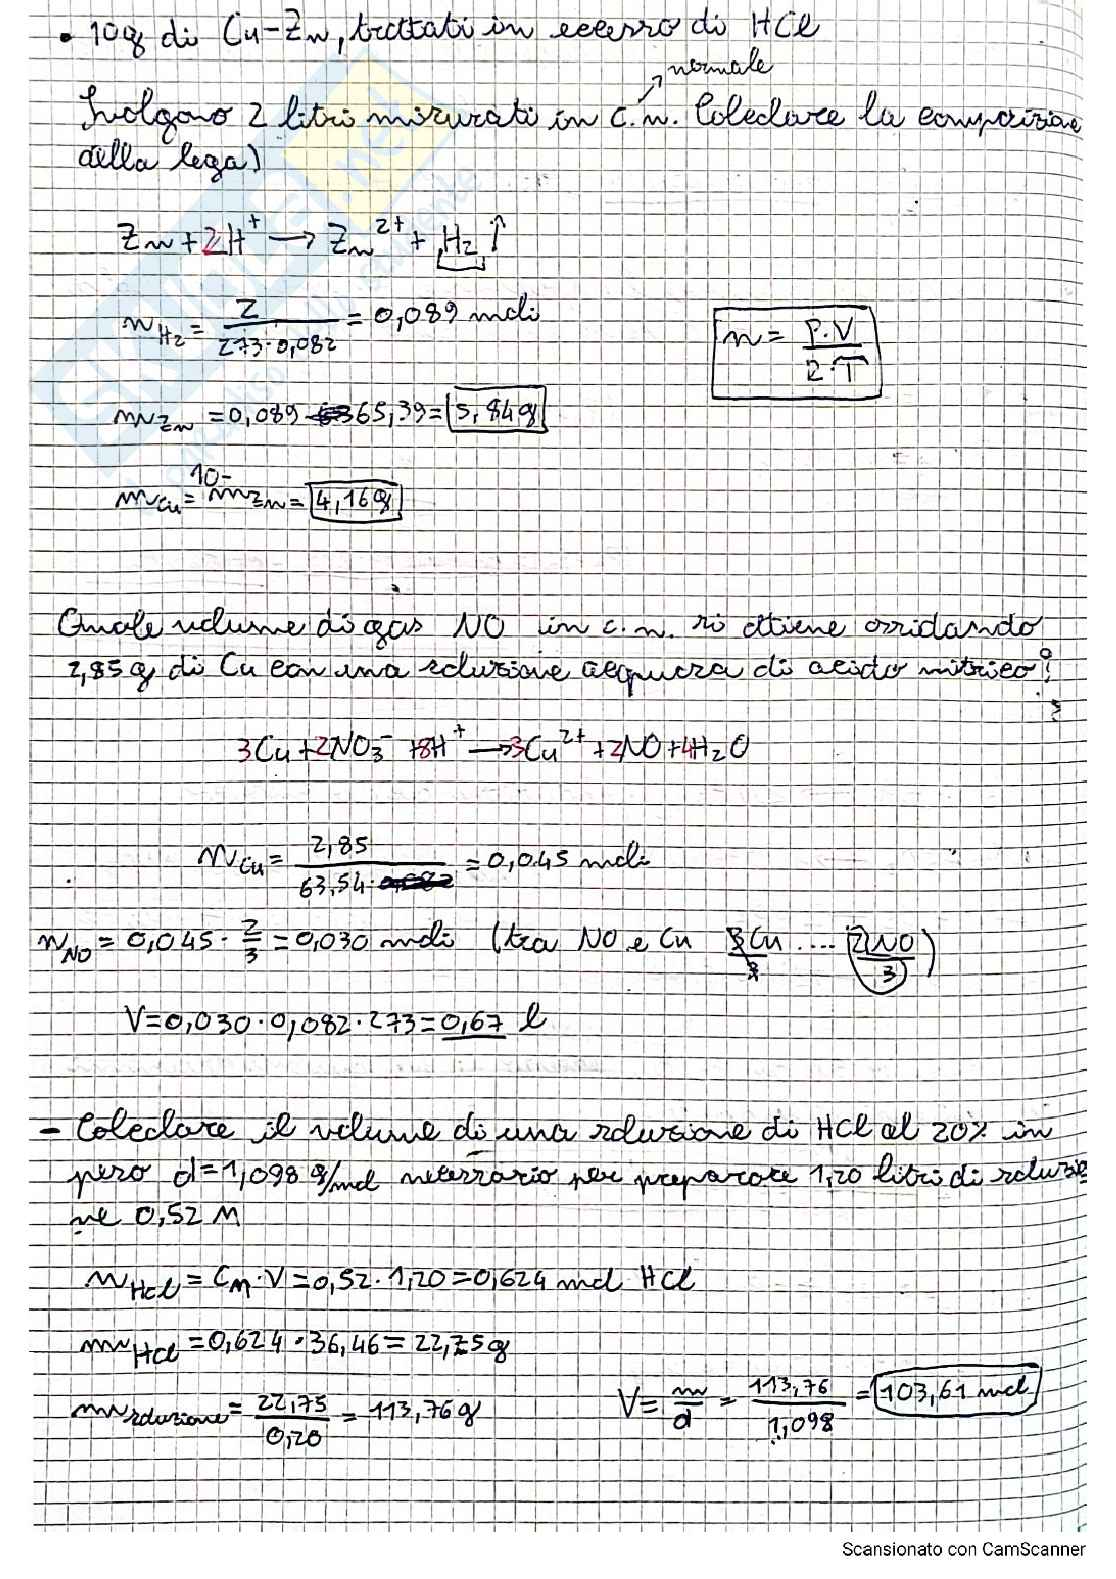 • 10g di Cu-Zn, trattati in eccesso di HCl
normale
Svolgono 2 litri misurati in c.n. Calcolare la composizione
della lega)
Zn + 2H⁺ → Zn²⁺ + H₂ ↑
n H₂ = 2 / 273·0,082 = 0,089 moli
n = P·V / R·T
m Zn = 0,089 · 65,39 = 5,84g
m Cu = 10 - m Zn = 4,16g
Quale volume di gas NO in c.n. si ottiene ossidando
2,85g di Cu con una soluzione acquosa di acido nitrico?
3Cu + 2NO₃⁻ + 8H⁺ → 3Cu²⁺ + 2NO + 4H₂O
n Cu = 2,85 / 63,54 = 0,045 moli
n NO = 0,045 · 2/3 = 0,030 moli (tra NO e Cu 3Cu/3 .... 2NO/3)
V = 0,030 · 0,082 · 273 = 0,67 l
- Calcolare il volume di una soluzione di HCl al 20% in
peso d=1,098 g/ml necessario per preparare 1,20 litri di soluzio
ne 0,52 M
n HCl = CM · V = 0,52 · 1,20 = 0,624 mol HCl
m HCl = 0,624 · 36,46 = 22,75g
m soluzione = 22,75 / 0,20 = 113,76g
V = m/d = 113,76 / 1,098 = 103,61 ml
Scansionato con CamScanner